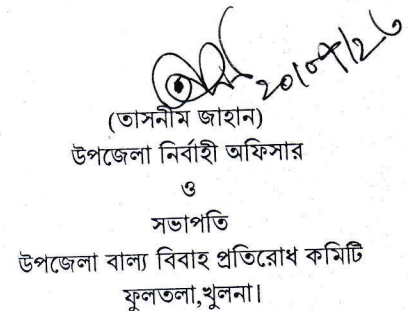 (তাসনীম জাহান)
উপজেলা নির্বাহী অফিসার
ও
সভাপতি
উপজেলা বাল্য বিবাহ প্রতিরোধ কমিটি
ফুলতলা,খুলনা।